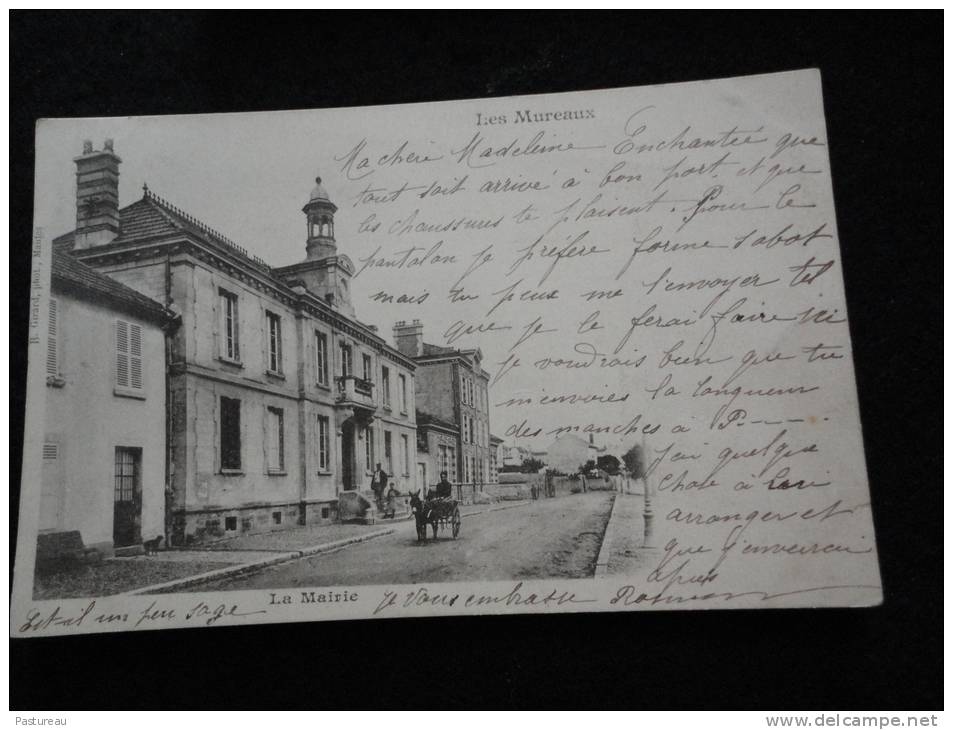 Les Mureaux
Ma chère Madeleine Enchantée que
tout soit arrivé à bon port, et que
les chaussures te plaisent. Pour le
pantalon je préfère forme sabot
mais tu peux me l'envoyer tel
que je le ferai faire ici
je voudrais bien que tu
m'envoies la longueur
des manches à P----.
j'ai quelque
chose à leur
arranger et
que j'enverrai
après
B. Girard, phot., Mantes
La Mairie
Je vous embrasse
Est-il un peu sage
Pastureau
www.delcampe.net